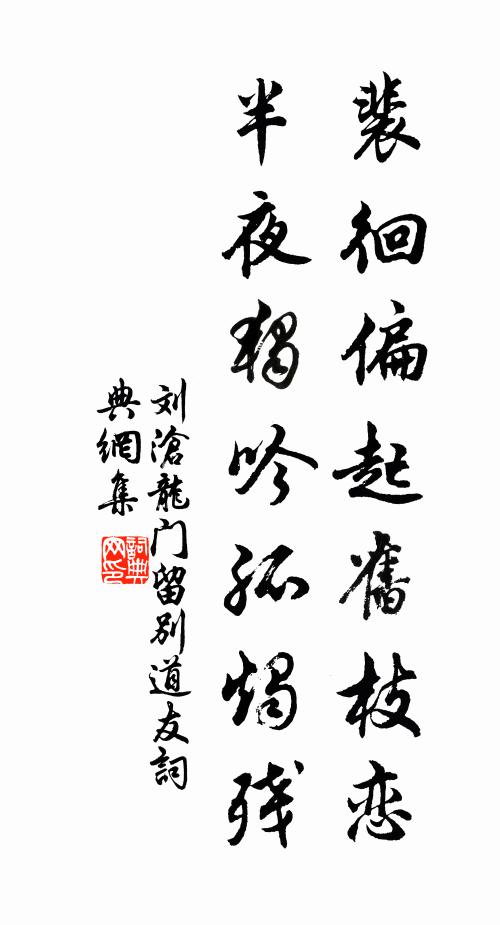 裴徊偏起舊枝恋
半夜独吟孤烛残
刘滄龍门留别道友詞
典網集
詞典網